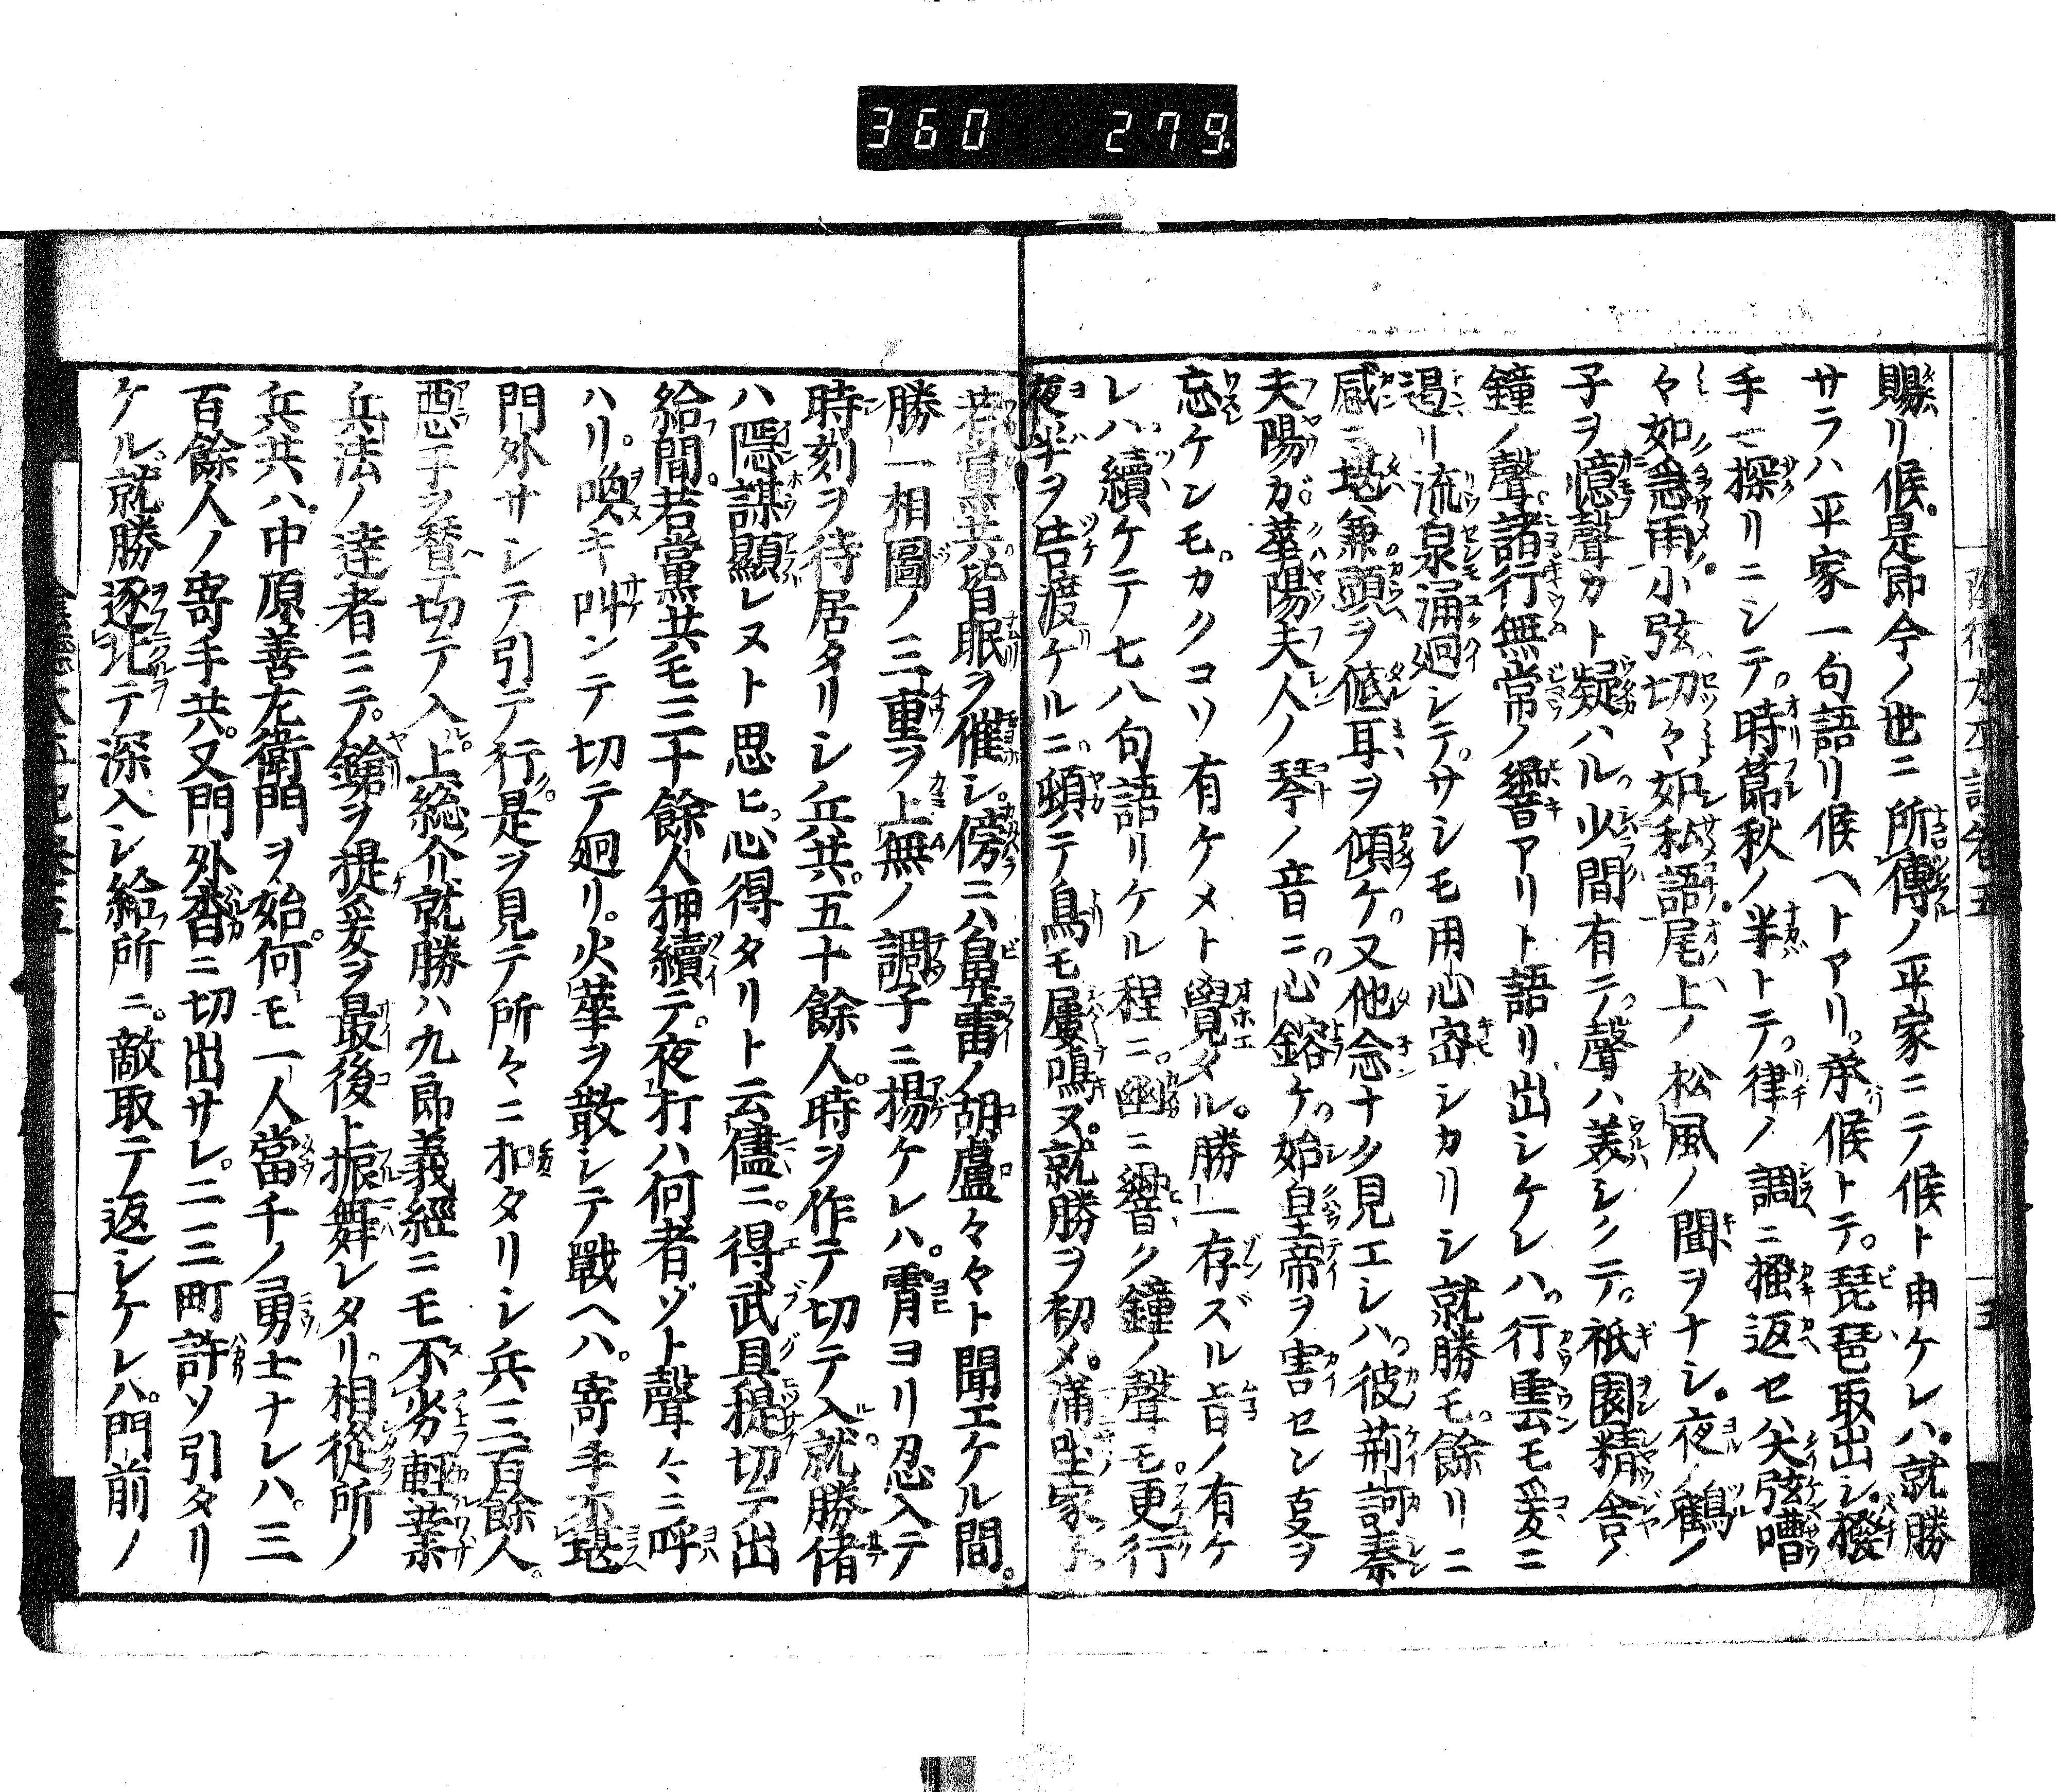 360 279
賜リ候。是即今ノ世ニ所傳ノ平家ニテ候ト申ケレハ。就勝
サラハ平家一句語リ候ヘトアリ。承候トテ。琵琶取出シ。撥
手ニ探リニシテ。時節秋ノ半トテ。律ノ調ニ掻返セハ大弦嘈
々如急雨。小弦切々如私語。尾上ノ松風ノ聞ヲナシ。夜ノ鶴ノ
子ヲ憶聲カト疑ハル。少間有テ。聲ハ美シクテ。祇園精舎ノ
鐘ノ聲。諸行無常ノ響アリト語リ出シケレハ。行雲モ爰ニ
遏リ流泉涌廻シテ。サシモ用心密シカリシ就勝モ。餘リニ
感ニ堪兼頭ヲ低耳ヲ傾ケ。又他念ナク見エシハ。彼荊軻秦
夫陽ガ華陽夫人ノ琴ノ音ニ。心鎔ケ。始皇帝ヲ害セン事ヲ
忘ケンモ。カクコソ有ケメト覺タル。勝一存ズル旨ノ有ケ
レハ。續ケテ七八句語リケル程ニ。幽ニ響ク鐘ノ聲モ更行
夜半ヲ告渡ケルニ。頓テ鳥モ屢鳴ヌ。就勝ヲ初メ。蒲生家ノ
若黨共。皆眠ヲ催シ。傍ニハ鼻雷ノ胡盧々々ト聞エケル間。
勝一相圖ノ三重ヲ上無ノ調子ニ揚ケレハ。宵ヨリ忍入テ
時刻ヲ待居タリシ兵共。五十餘人。時ヲ作テ切テ入。就勝偖
ハ隠謀顯レヌト思ヒ。心得タリト云儘ニ。得武具提切テ出
給間。若黨共モ三十餘人押續テ。夜打ハ何者ゾト聲々ニ呼
ハリ。喚キ叫ンテ切テ廻リ。火華ヲ散シテ戰ヘハ。寄手不堪
門外サシテ引テ行。是ヲ見テ所々ニ扣タリシ兵三百餘人。
悪手ヲ替切テ入。上総介就勝ハ九郎義經ニモ不劣輕業
兵法ノ達者ニテ。鎗ヲ提爰ヲ最後ト振舞レタリ。相從所ノ
兵共ハ。中原善左衛門ヲ始。何モ一人當千ノ勇士ナレハ。三
百餘人ノ寄手共。又門外沓ニ切出サレ。二三町許ソ引タリ
ケル。就勝逐北テ深入シ給所ニ。敵取テ返シケレハ。門前ノ